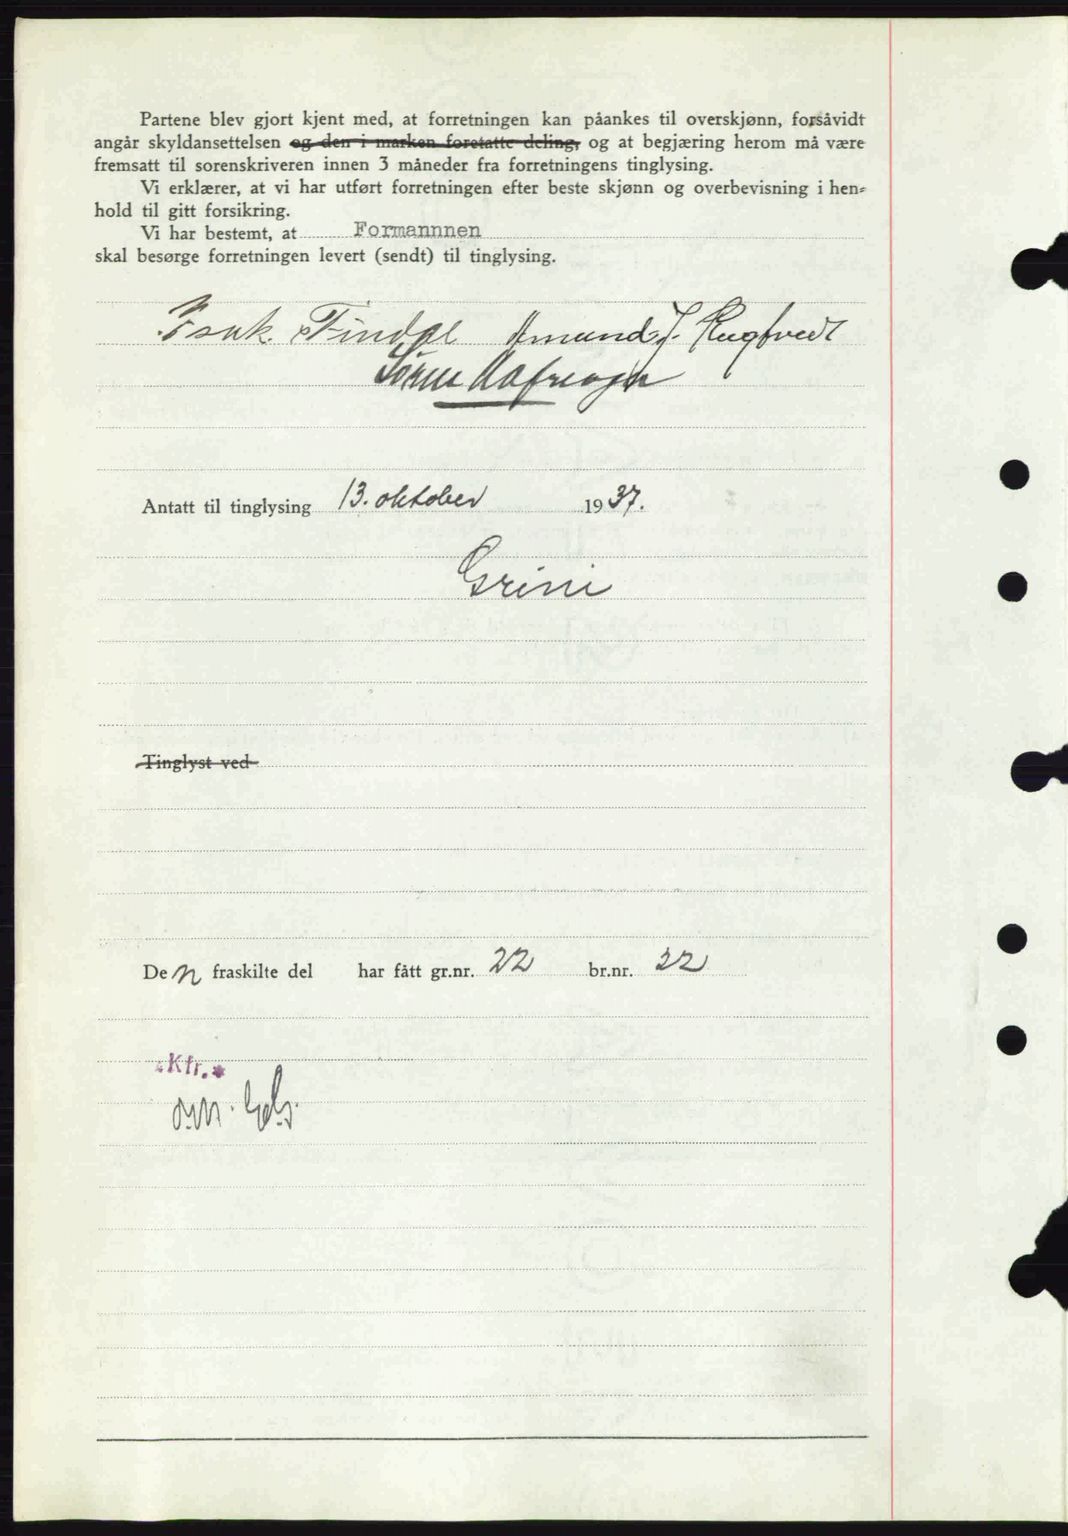 Partene blev gjort kjent med, at forretningen kan påankes til overskjønn, forsåvidt
angår skyldansettelsen og den i marken foretatte deling, og at begjæring herom må være
fremsatt til sorenskriveren innen 3 måneder fra forretningens tinglysing.
Vi erklærer, at vi har utført forretningen efter beste skjønn og overbevisning i hen-
hold til gitt forsikring.
Vi har bestemt, at Formannnen
skal besørge forretningen levert (sendt) til tinglysing.
Isak Findal Amund J. Rugtvedt
Søren
Antatt til tinglysing 13. oktober 1937.
Grini
Tinglyst ved
Den fraskilte del har fått gr.nr. 22 br.nr. 32
Ktr.